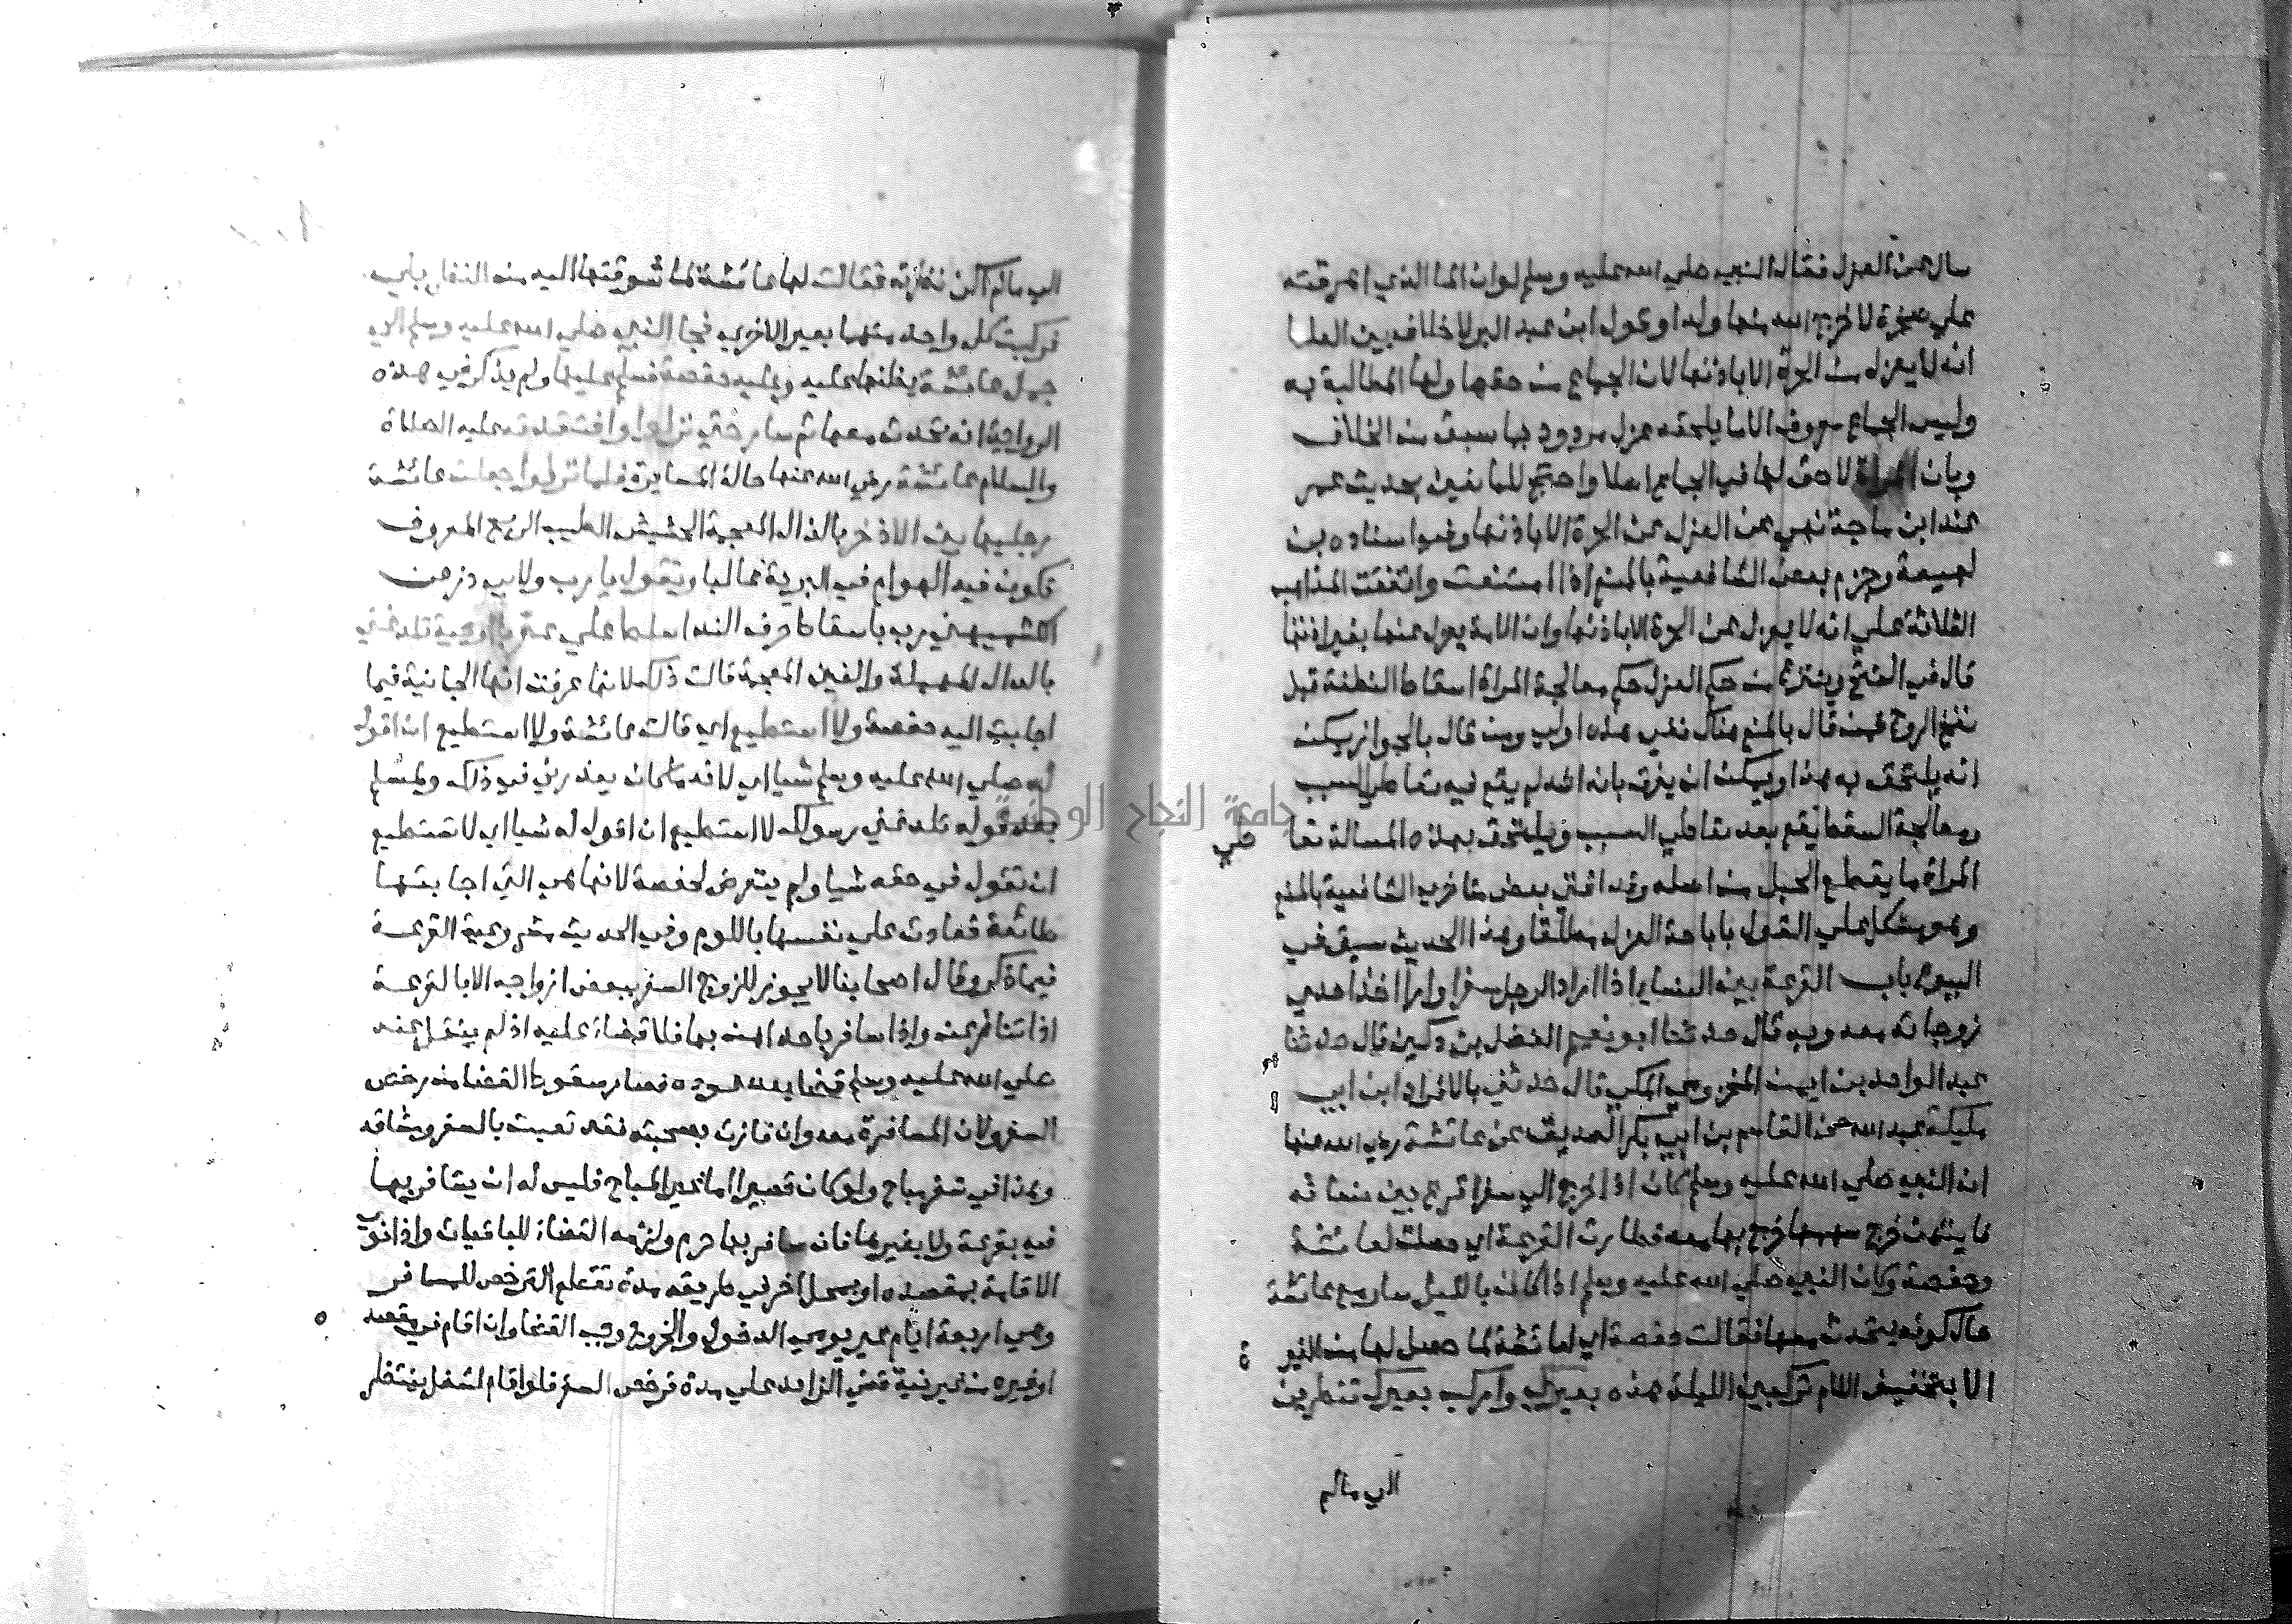 سال عن العزل فقال النبي صلي الله عليه وسلم لو ان الما الذي اهرقته
علي صخرة لاخرج الله منها ولدا وبقول ابن عبد البر لا خلاف بين العلما
انه لا يعزل من الحرة الا باذنها لان الجماع من حقها ولها المطالبة به
وليس الجماع معروف الا ما يلحقه عزل مردود بما سبق من الخلاف
وبان المراة لا حق لها في الجماع اصلا واحتج للمانعين بحديث عمر
عند ابن ماجة نهي عن العزل عن الحرة الا باذنها وفي اسناده بن
لهيعة وجزم بعض الشافعية بالمنع اذا امتنعت واتفقت المذاهب
الثلاثة علي انه لا يعزل عن الحرة الا باذنها وان الامة يعزل عنها بغير اذنها
قال في الفتح وينتزع من حكم العزل حكم معالجة المراة اسقاط النطفة قبل
نفخ الروح فمن قال بالمنع هناك ففي هذه اولي ومن قال بالجواز يمكن
انه يلتحق به هذا ويمكن ان يفرق بانه اشد لم يقع فيه تعاطي السبب
ومعالجة السقط يقع بعد تعاطي السبب ويلتحق بهذه المسالة تعا طي
المراة ما يقطع الحبل من اصله وقد افتي بعض متاخري الشافعية بالمنع
وهو مشكل علي القول باباحة العزل مطلقا وهذا الحديث سبق في
البيوع باب القرعة بين النساء اذا اراد الرجل سفرا واراد اخذ احدي
زوجاته معه وبه قال حدثنا ابو نعيم الفضل بن دكين قال حدثنا
عبد الواحد بن ايمن المخزومي المكي قال حدثني بالافراد ابن ابي
مليكة عبد الله عن القاسم بن ابي بكر الصديق عن عائشة رضي الله عنها
ان النبي صلي الله عليه وسلم كان اذا خرج الي سفر اقرع بين نسائه
فايتهن خرج سهمها خرج بها معه فطارت القرعة اي حصلت لعائشة
وحفصة وكان النبي صلي الله عليه وسلم اذا كان بالليل سار مع عائشة
حال كونه يتحدث معها فقالت حفصة اي لعائشة لما حصل لها من الغير ة
الا بتخفيف اللام تركبين الليلة هذه بعيري واركب بعيرك تنظرين
الي مالم
الي مالم اكن نظرته فقالت لها عائشة لما شوقتها اليه من النظر بلي
فركبت كل واحدة منهما بعير الاخري فجا النبي صلي الله عليه وسلم الي
جمل عائشة يظنها عليه وعليه حفصة فسلم عليها ولم يذكر في هذه
الرواية انه تحدث معها ثم سار حتي نزلوا وافتقدته عليه الصلاة
والسلام عائشة رضي الله عنها حالة المسايرة فلما نزلوا جعلت عائشة
رجليها بين الاذخر بالذال المعجمة الحشيش الطيب الريح المعروف
تكون فيه الهوام في البرية غالبا وتقول يا رب ولابي ذر عن
الكشميهني رب باسقاط حرف الندا سلط علي عقربا او حية تلدغني
بالدال المهملة والغين المعجمة قالت ذلك لانها عرفت انها الجانية فيما
اجابت اليه حفصة ولا استطيع اي قالت عائشة ولا استطيع ان اقول
له صلي الله عليه وسلم شيا اي لانه ما كان يعذرني في ذلك ولمسلم
بعد قوله تلدغني رسولك لا استطيع ان اقول له شيا اي لا تستطيع
ان تقول في حقه شيا ولم يتعرض لحفصة لانها هي التي اجابتها
طائعة فعادت علي نفسها باللوم وفي الحديث مشروعية القرعة
فيما ذكر وقال اصحابنا لا يجوز للزوج السفر ببعض ازواجه الا بالقرعة
اذا تنازعن واذا سافر باحداهن بها فلا قضاء عليه اذ لم ينقل عنه
صلي الله عليه وسلم قضا بعد عوده فصار سقوط القضا من رخص
السفر ولان المسافرة معه وان فازت بصحبته فقد تعبت بالسفر ومشاقه
وهذا في سفر مباح ولو كان قصيرا اما غير المباح فليس له ان يسافر بها
فيه بقرعة ولا بغيرها فان سافر بها حرم ولزمه القضاء للباقيات واذا نوي
الاقامة بمقصده او بمحل اخر في طريقه مدة تقطع الترخص للمسافر
وهي اربعة ايام غير يومي الدخول والخروج وجب القضا وان اقام في مقصد ه
او غيره من غير نية قضي الزائد علي مدة ترخص السفر فلو اقام لشغل ينتظر
جامعة النجاح الوطنية